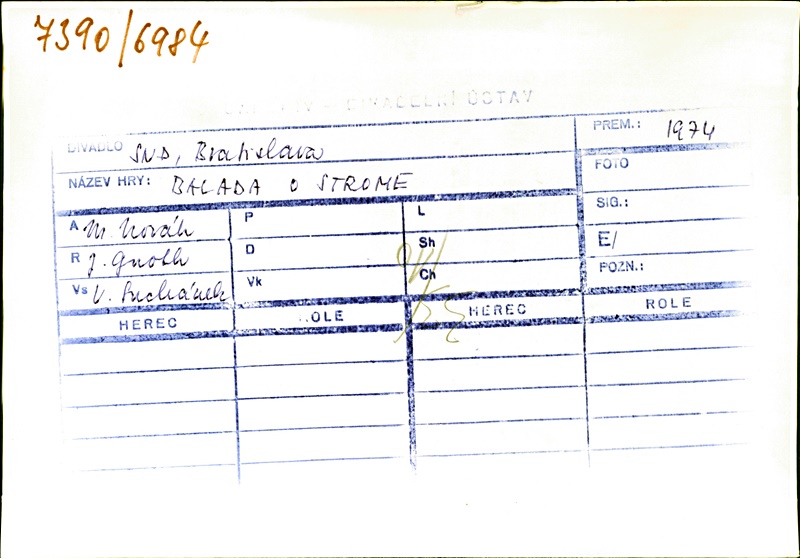 7390/6984
DIVADELNÍ ÚSTAV
DIVADLO SND, Bratislava
PREM.: 1974
NÁZEV HRY: BALADA O STROME
FOTO
SIG.:
E/
POZN.:
A M. Novák P L
R J. Gnoth D Sh
Vs V. Suchánek Vk Ch
HEREC ROLE HEREC ROLE